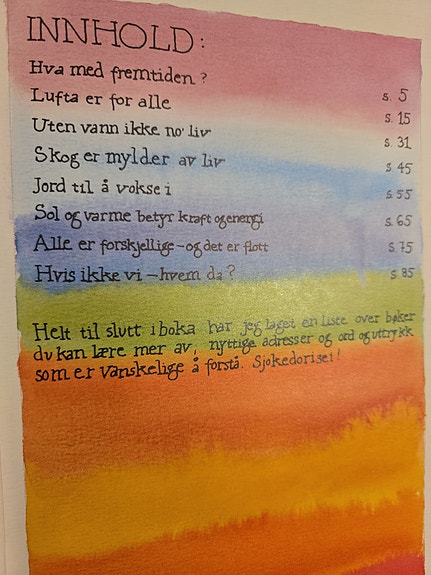 INNHOLD:
Hva med fremtiden? s. 5
Lufta er for alle s. 15
Uten vann ikke no' liv s. 31
Skog er mylder av liv s. 45
Jord til å vokse i s. 55
Sol og varme betyr kraft og energi s. 65
Alle er forskjellige – og det er flott s. 75
Hvis ikke vi – hvem da? s. 85
Helt til slutt i boka har jeg laget en liste over bøker
du kan lære mer av, nyttige adresser og ord og uttrykk
som er vanskelige å forstå. Sjokedoriset!